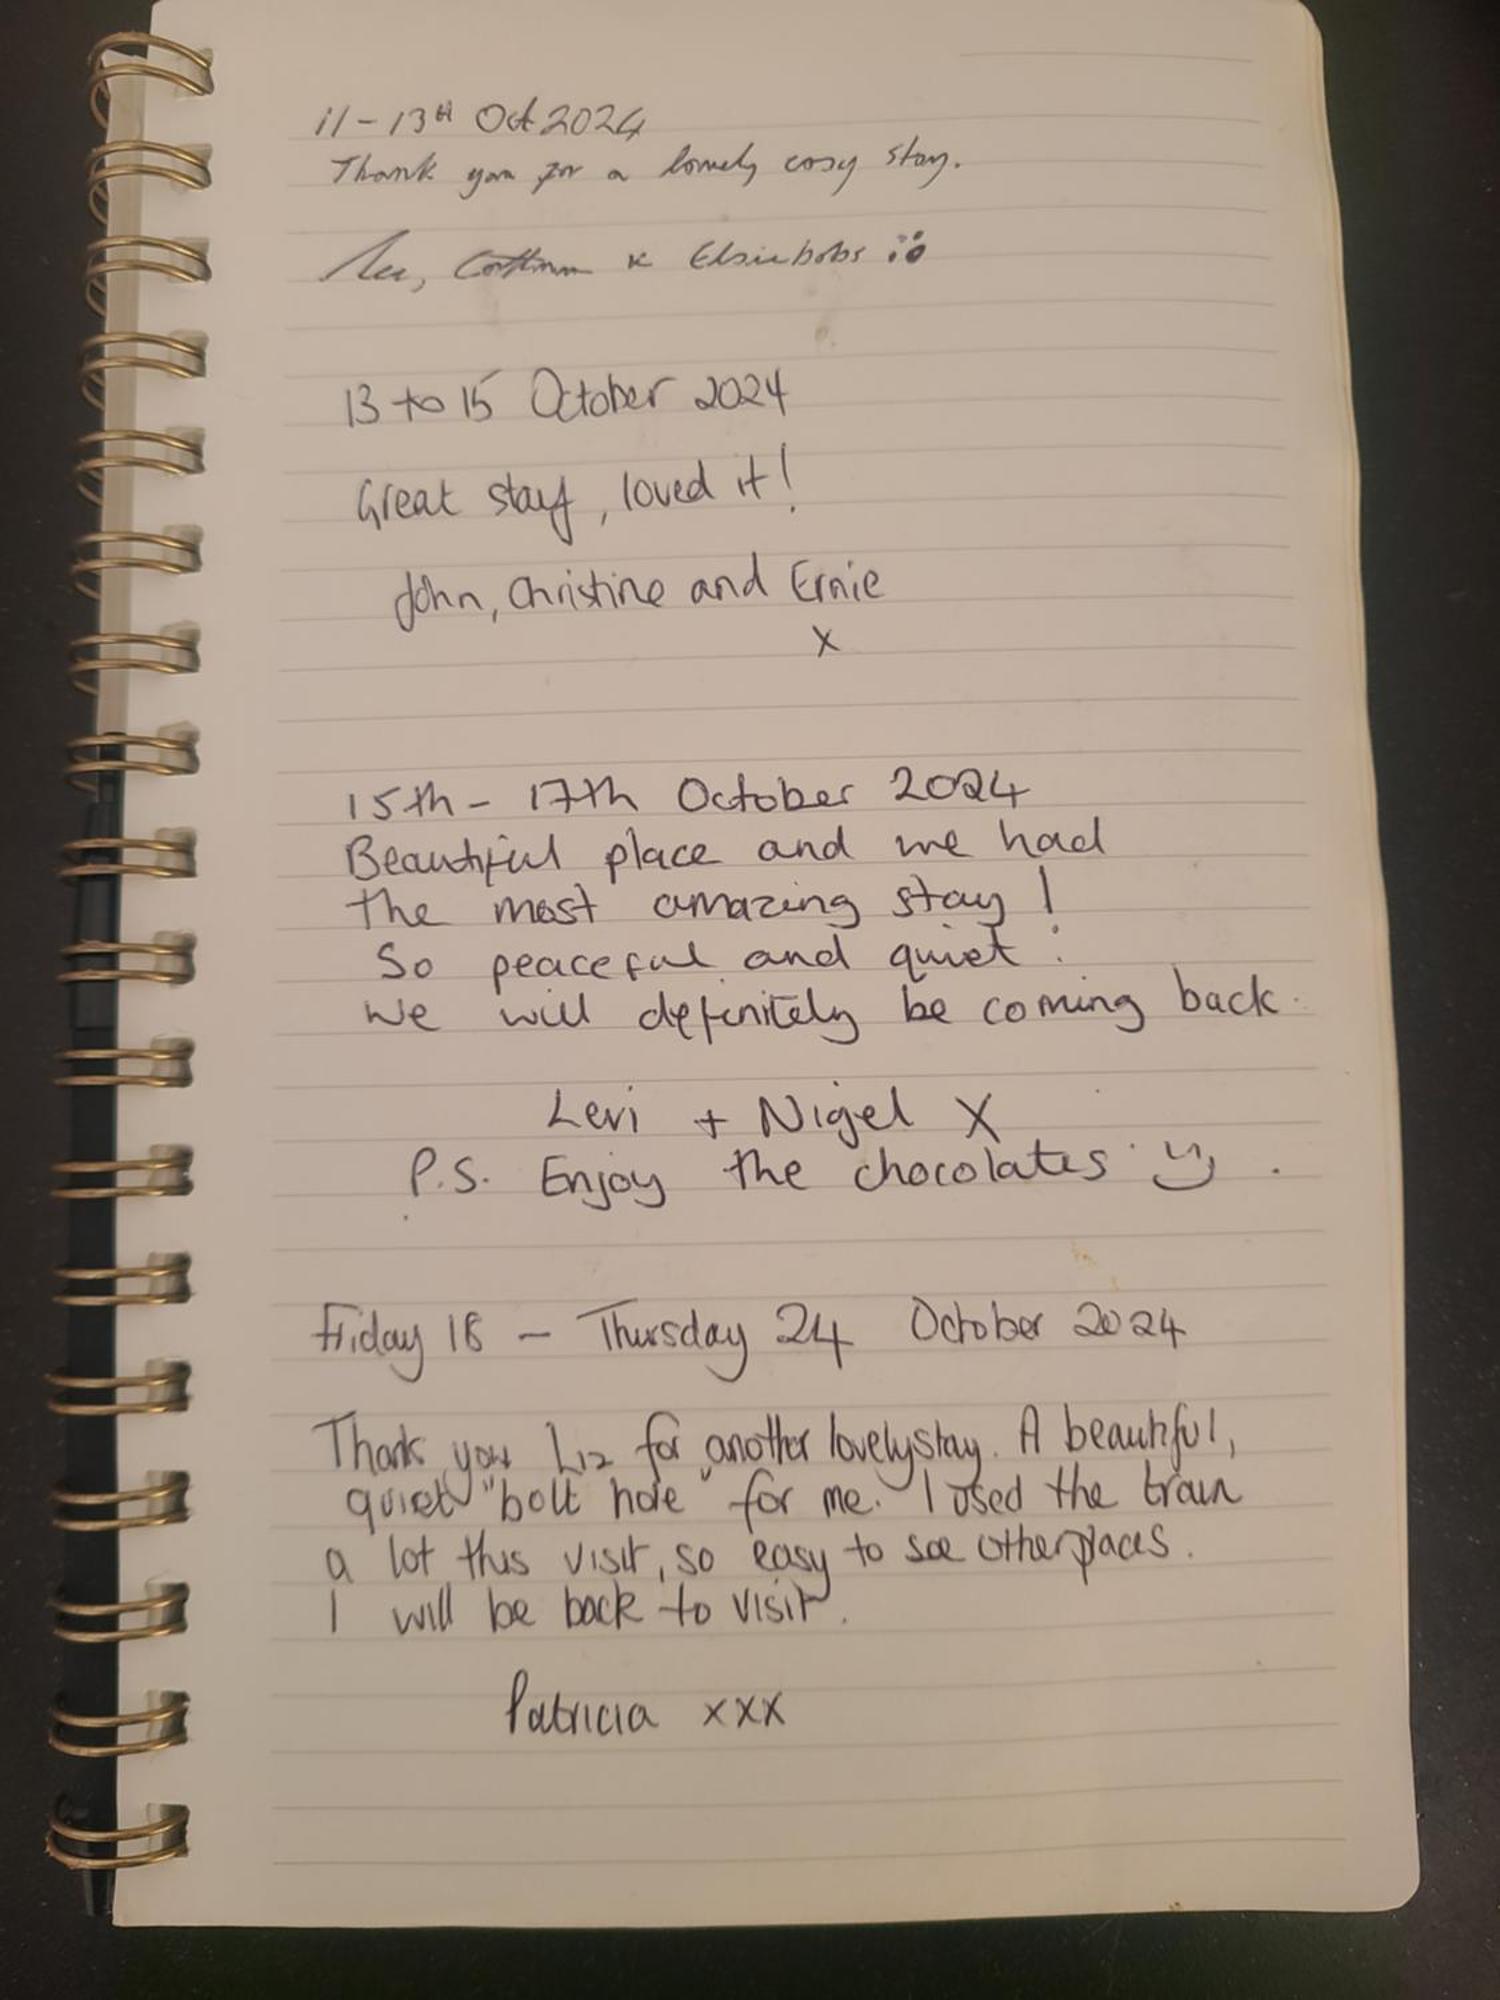 11 - 13th Oct 2024
Thank you for a lovely cosy stay.
& Elsiebobs
13 to 15 October 2024
Great stay, loved it!
John, Christine and Ernie
x
15th - 17th October 2024
Beautiful place and we had
the most amazing stay!
So peaceful and quiet!
We will definitely be coming back.
Levi + Nigel X
P.S. Enjoy the chocolates :)
Friday 18 - Thursday 24 October 2024
Thank you Liz for another lovely stay. A beautiful,
quiet "bolt hole" for me. I used the train
a lot this visit, so easy to see other places.
I will be back to visit.
Patricia xxx